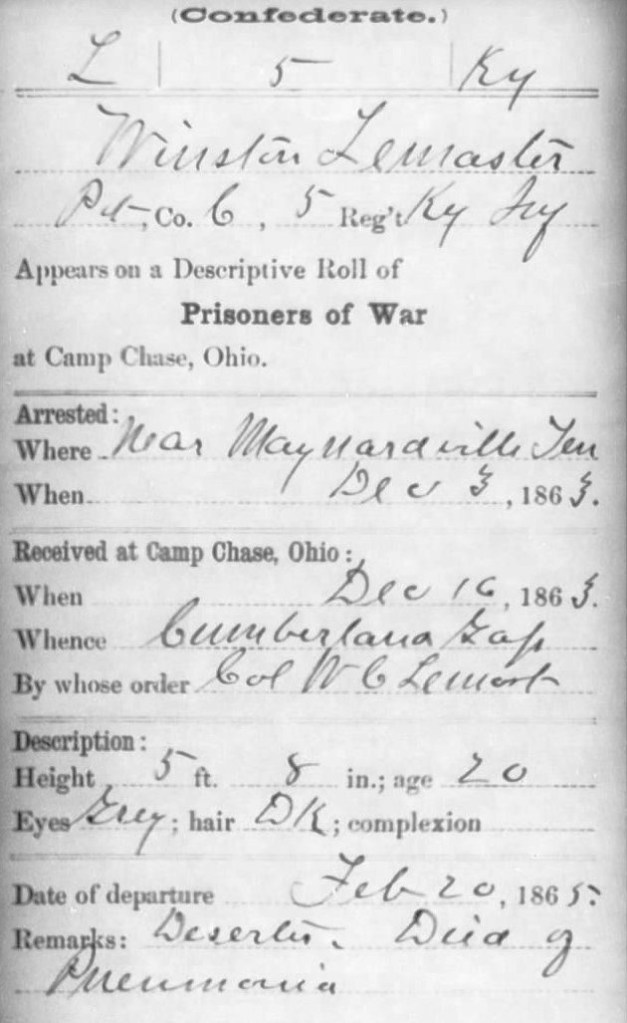 (Confederate.)
L 5 Ky
Winston Lemaster
Pvt, Co. C, 5 Reg't Ky Inf
Appears on a Descriptive Roll of
Prisoners of War
at Camp Chase, Ohio.
Arrested:
Where Near Maynardville Ten
When Dec 3, 1863.
Received at Camp Chase, Ohio:
When Dec 16, 1863.
Whence Cumberland Gap
By whose order Col W C Lemert
Description:
Height 5 ft. 8 in.; age 20
Eyes Grey; hair DK; complexion
Date of departure Feb 20, 1865.
Remarks: Deserter. Died of
Pneumonia